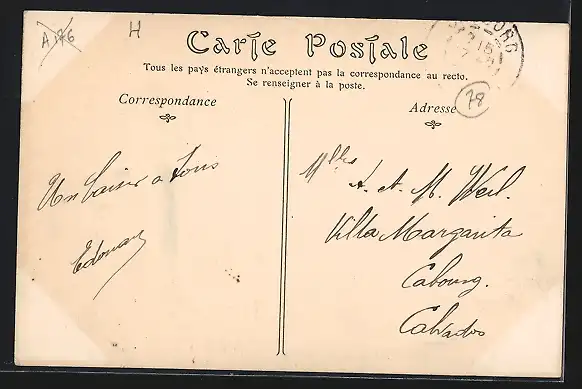 A 76
H
Carte Postale
Tous les pays étrangers n'acceptent pas la correspondance au recto.
Se renseigner à la poste.
Correspondance
Adresse
78
Un baiser a tous
Edouard
Mlles
A. et M. Weil.
Villa Margarita
Cabourg.
Calvados